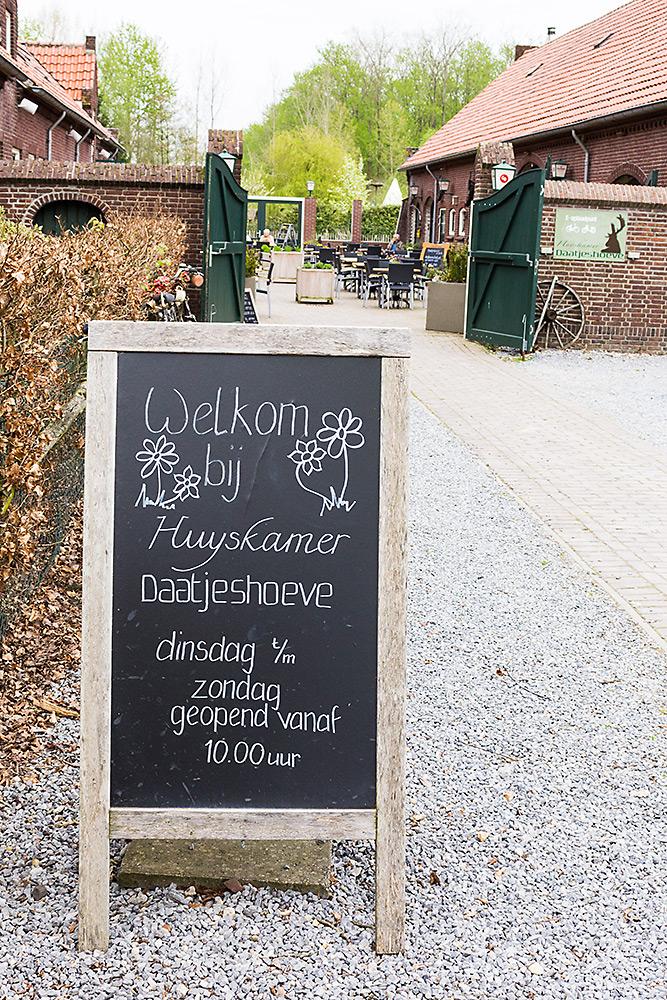 Welkom
bij
Huyskamer
Daatjeshoeve
dinsdag t/m
zondag
geopend vanaf
10.00 uur
E-oplaadpunt
Huyskamer
Daatjeshoeve